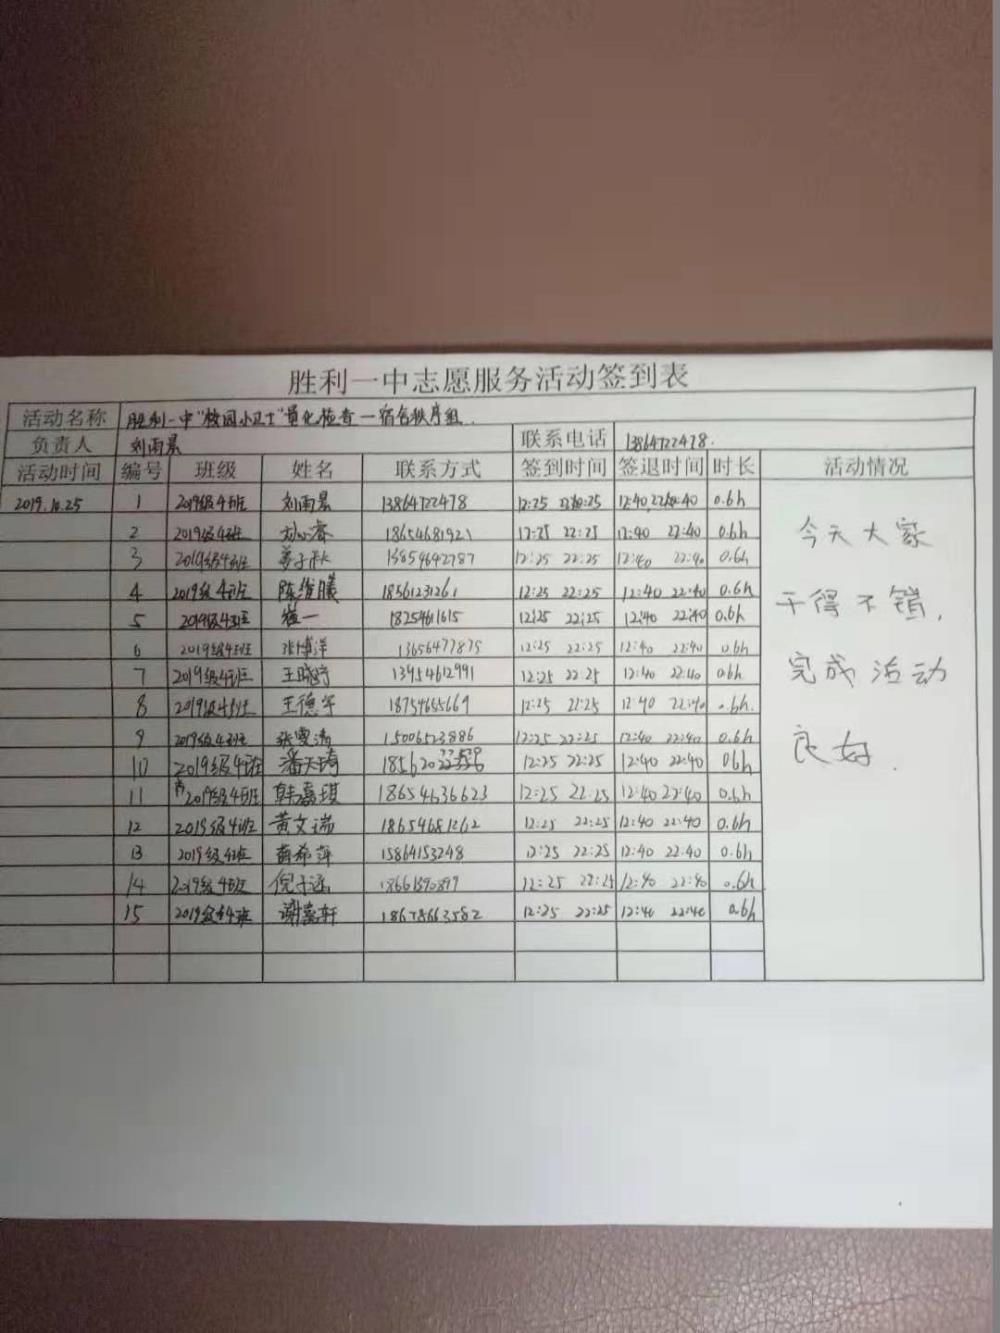 胜利一中志愿服务活动签到表
活动名称 胜利一中"校园小卫士"量化检查一宿舍秩序组.
负责人 刘雨晨 联系电话 13864722478.
活动时间 编号 班级 姓名 联系方式 签到时间 签退时间 时长 活动情况
2019.10.25 1 2019级4班 刘雨晨 13864722478 12:25 22:25 12:40 22:40 0.6h
2 2019级4班 18654681921 12:25 22:25 12:40 22:40 0.6h
3 2019级4班 姜子秋 12:25 22:25 12:40 22:40 0.6h
4 2019级4班 18561231261 12:25 22:25 12:40 22:40 0.6h
5 2019级4班 崔一 18254611615 12:25 22:25 12:40 22:40 0.6h
6 2019级4班 张博洋 13656477875 12:25 22:25 12:40 22:40 0.6h
7 2019级4班 王晓宁 13954612991 12:25 22:25 12:40 22:40 0.6h
8 2019级4班 王德宇 18754655669 12:25 22:25 12:40 22:40 0.6h.
9 2019级4班 15006523886 12:25 22:25 12:40 22:40 0.6h
10 2019级4班 潘天琦 12:25 22:25 12:40 22:40 0.6h
11 2019级4班 韩嘉琪 18654636623 12:25 22:25 12:40 22:40 0.6h
12 2019级4班 黄文瑞 18654681262 12:25 22:25 12:40 22:40 0.6h
13 2019级4班 15864153248 12:25 22:25 12:40 22:40 0.6h
14 2019级4班 倪子涵 12:25 22:25 12:40 22:40 0.6h
15 2019级4班 谢嘉轩 18678663582 12:25 22:25 12:40 22:40 0.6h
今天大家
干得不错,
完成活动
良好.